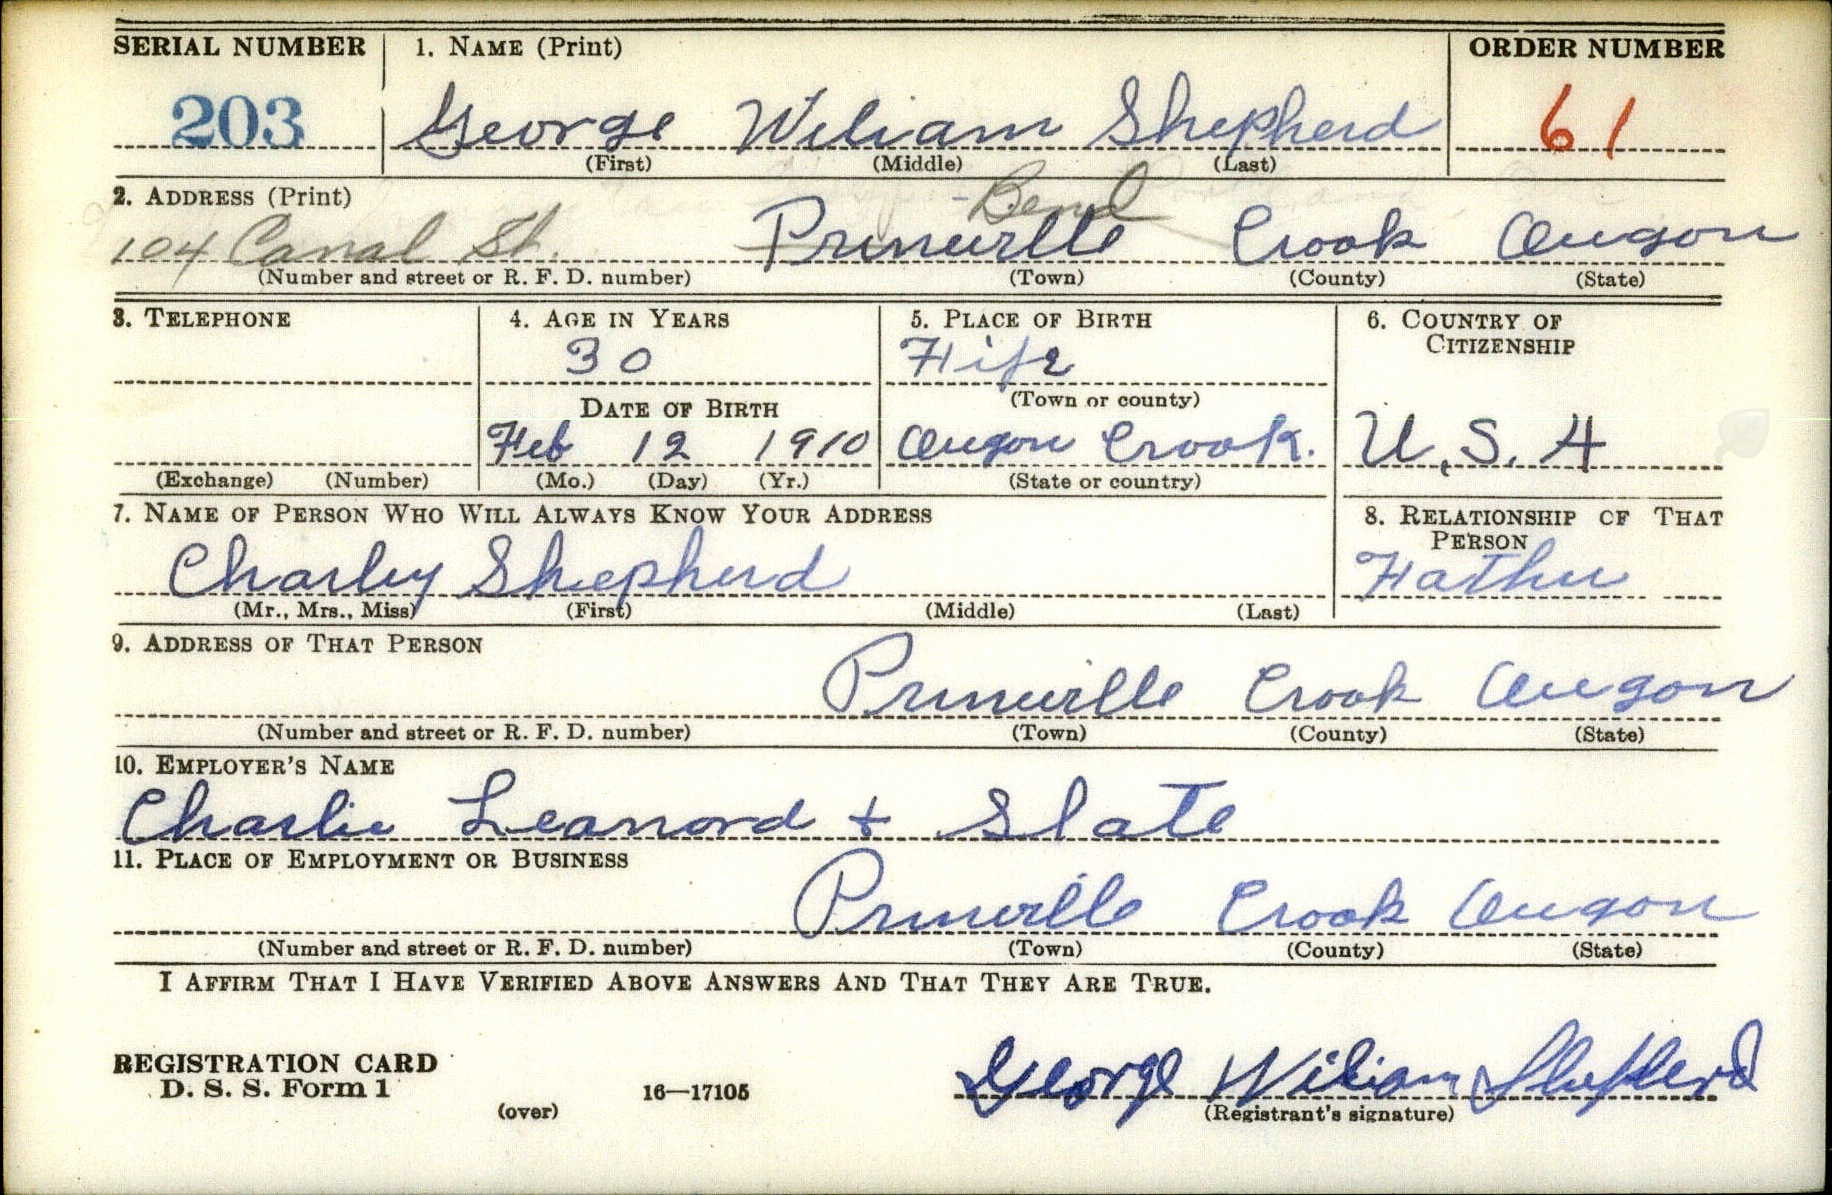 SERIAL NUMBER 1. NAME (Print) ORDER NUMBER
203 George Wiliam Shepherd 61
(First) (Middle) (Last)
2. ADDRESS (Print) Bend
104 Canal St. Prineville Crook Oregon
(Number and street or R. F. D. number) (Town) (County) (State)
3. TELEPHONE 4. AGE IN YEARS 5. PLACE OF BIRTH 6. COUNTRY OF CITIZENSHIP
30 Fife
DATE OF BIRTH (Town or county)
Feb 12 1910 Oregon Crook. U.S.A
(Exchange) (Number) (Mo.) (Day) (Yr.) (State or country)
7. NAME OF PERSON WHO WILL ALWAYS KNOW YOUR ADDRESS 8. RELATIONSHIP OF THAT PERSON
Charley Shepherd Father
(Mr., Mrs., Miss) (First) (Middle) (Last)
9. ADDRESS OF THAT PERSON
Prineville Crook Oregon
(Number and street or R. F. D. number) (Town) (County) (State)
10. EMPLOYER'S NAME
Charlie Leanord + Slate
11. PLACE OF EMPLOYMENT OR BUSINESS
Prineville Crook Oregon
(Number and street or R. F. D. number) (Town) (County) (State)
I AFFIRM THAT I HAVE VERIFIED ABOVE ANSWERS AND THAT THEY ARE TRUE.
REGISTRATION CARD
D. S. S. Form 1 16—17105 George Wiliam Shepherd
(over) (Registrant's signature)